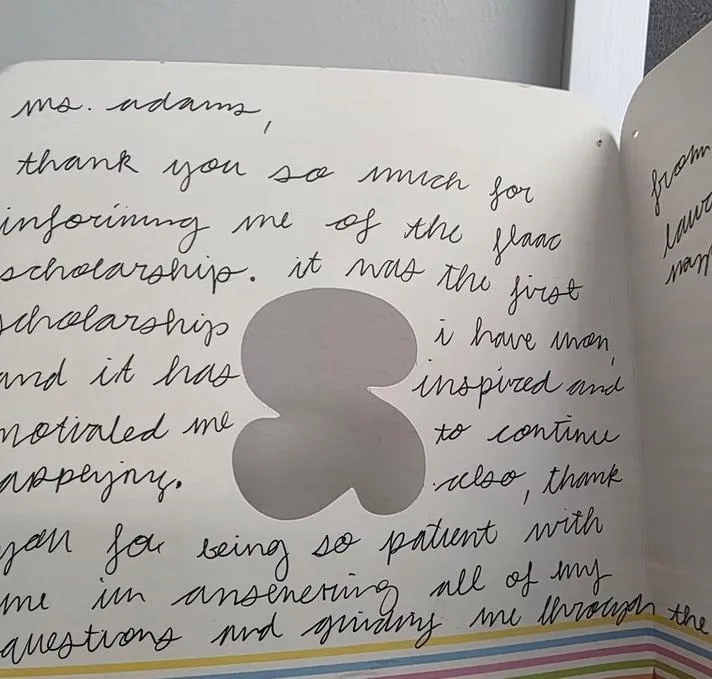 ms. adams,
thank you so much for
informing me of the flaac
scholarship. it was the first
scholarship i have won,
and it has inspired and
motivated me to continue
applying. also, thank
you for being so patient with
me in answering all of my
questions and guiding me through the
from